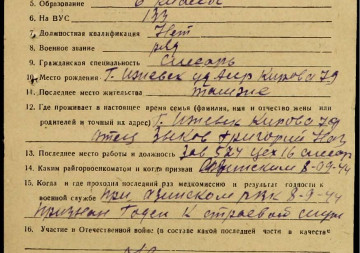 5. Образование 6 классов
6. На ВУС 133
7. Должностная квалификация Нет
8. Военное звание ряд
9. Гражданская специальность слесарь
10. Место рождения г. Ижевск уд. Аср Кирова 79
11. Последнее место жительства там же
12. Где проживает в настоящее время семья (фамилия, имя и отчество жены или
родителей и точный их адрес) г. Ижевск Кирова 79
отец Зыков Григорий
13. Последнее место работы и должность зав 524 цех 16 слесарь
14. Каким райгорвоенкоматом и когда призван 8-09-44
15. Когда и где проходил последний раз медкомиссию и результат годности к
военной службе при РВК 8-9-44
признан годен к строевой служ
16. Участие в Отечественной войне (в составе какой последней части в качестве